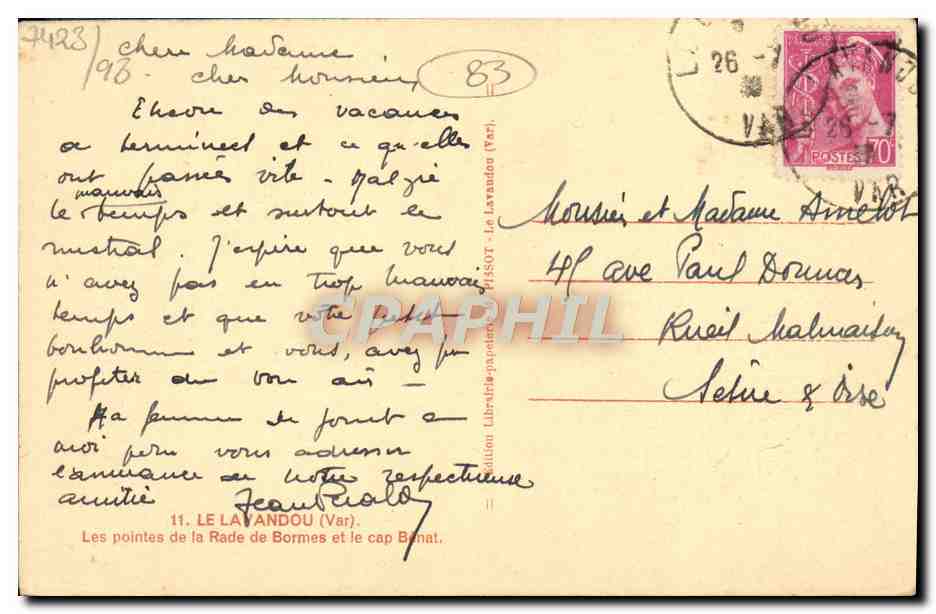 7423/
93
83
Chère Madame
cher Monsieur,
Encore des vacances
de terminées et ce qu'elles
ont passées vite - Malgré
mauvais
le temps et surtout le
mistral. J'espère que vous
n'avez pas eu trop mauvais
temps et que votre petit
bonhomme et vous, avez pu
profiter du bon air -
Ma femme se joint à
moi pour vous adresser
l'assurance de notre respectueuse
amitié
Jean
11. LE LAVANDOU (Var).
Les pointes de la Rade de Bormes et le cap Bénat.
Edition Librairie-papeterie PISSOT - Le Lavandou (Var).
26 -
VAR
LAVANDOU
26 -7
VAR
POSTES
70c
Monsieur et Madame Amelot
45 ave Paul Doumer
Rueil Malmaison
Seine & Oise
CPAPHIL